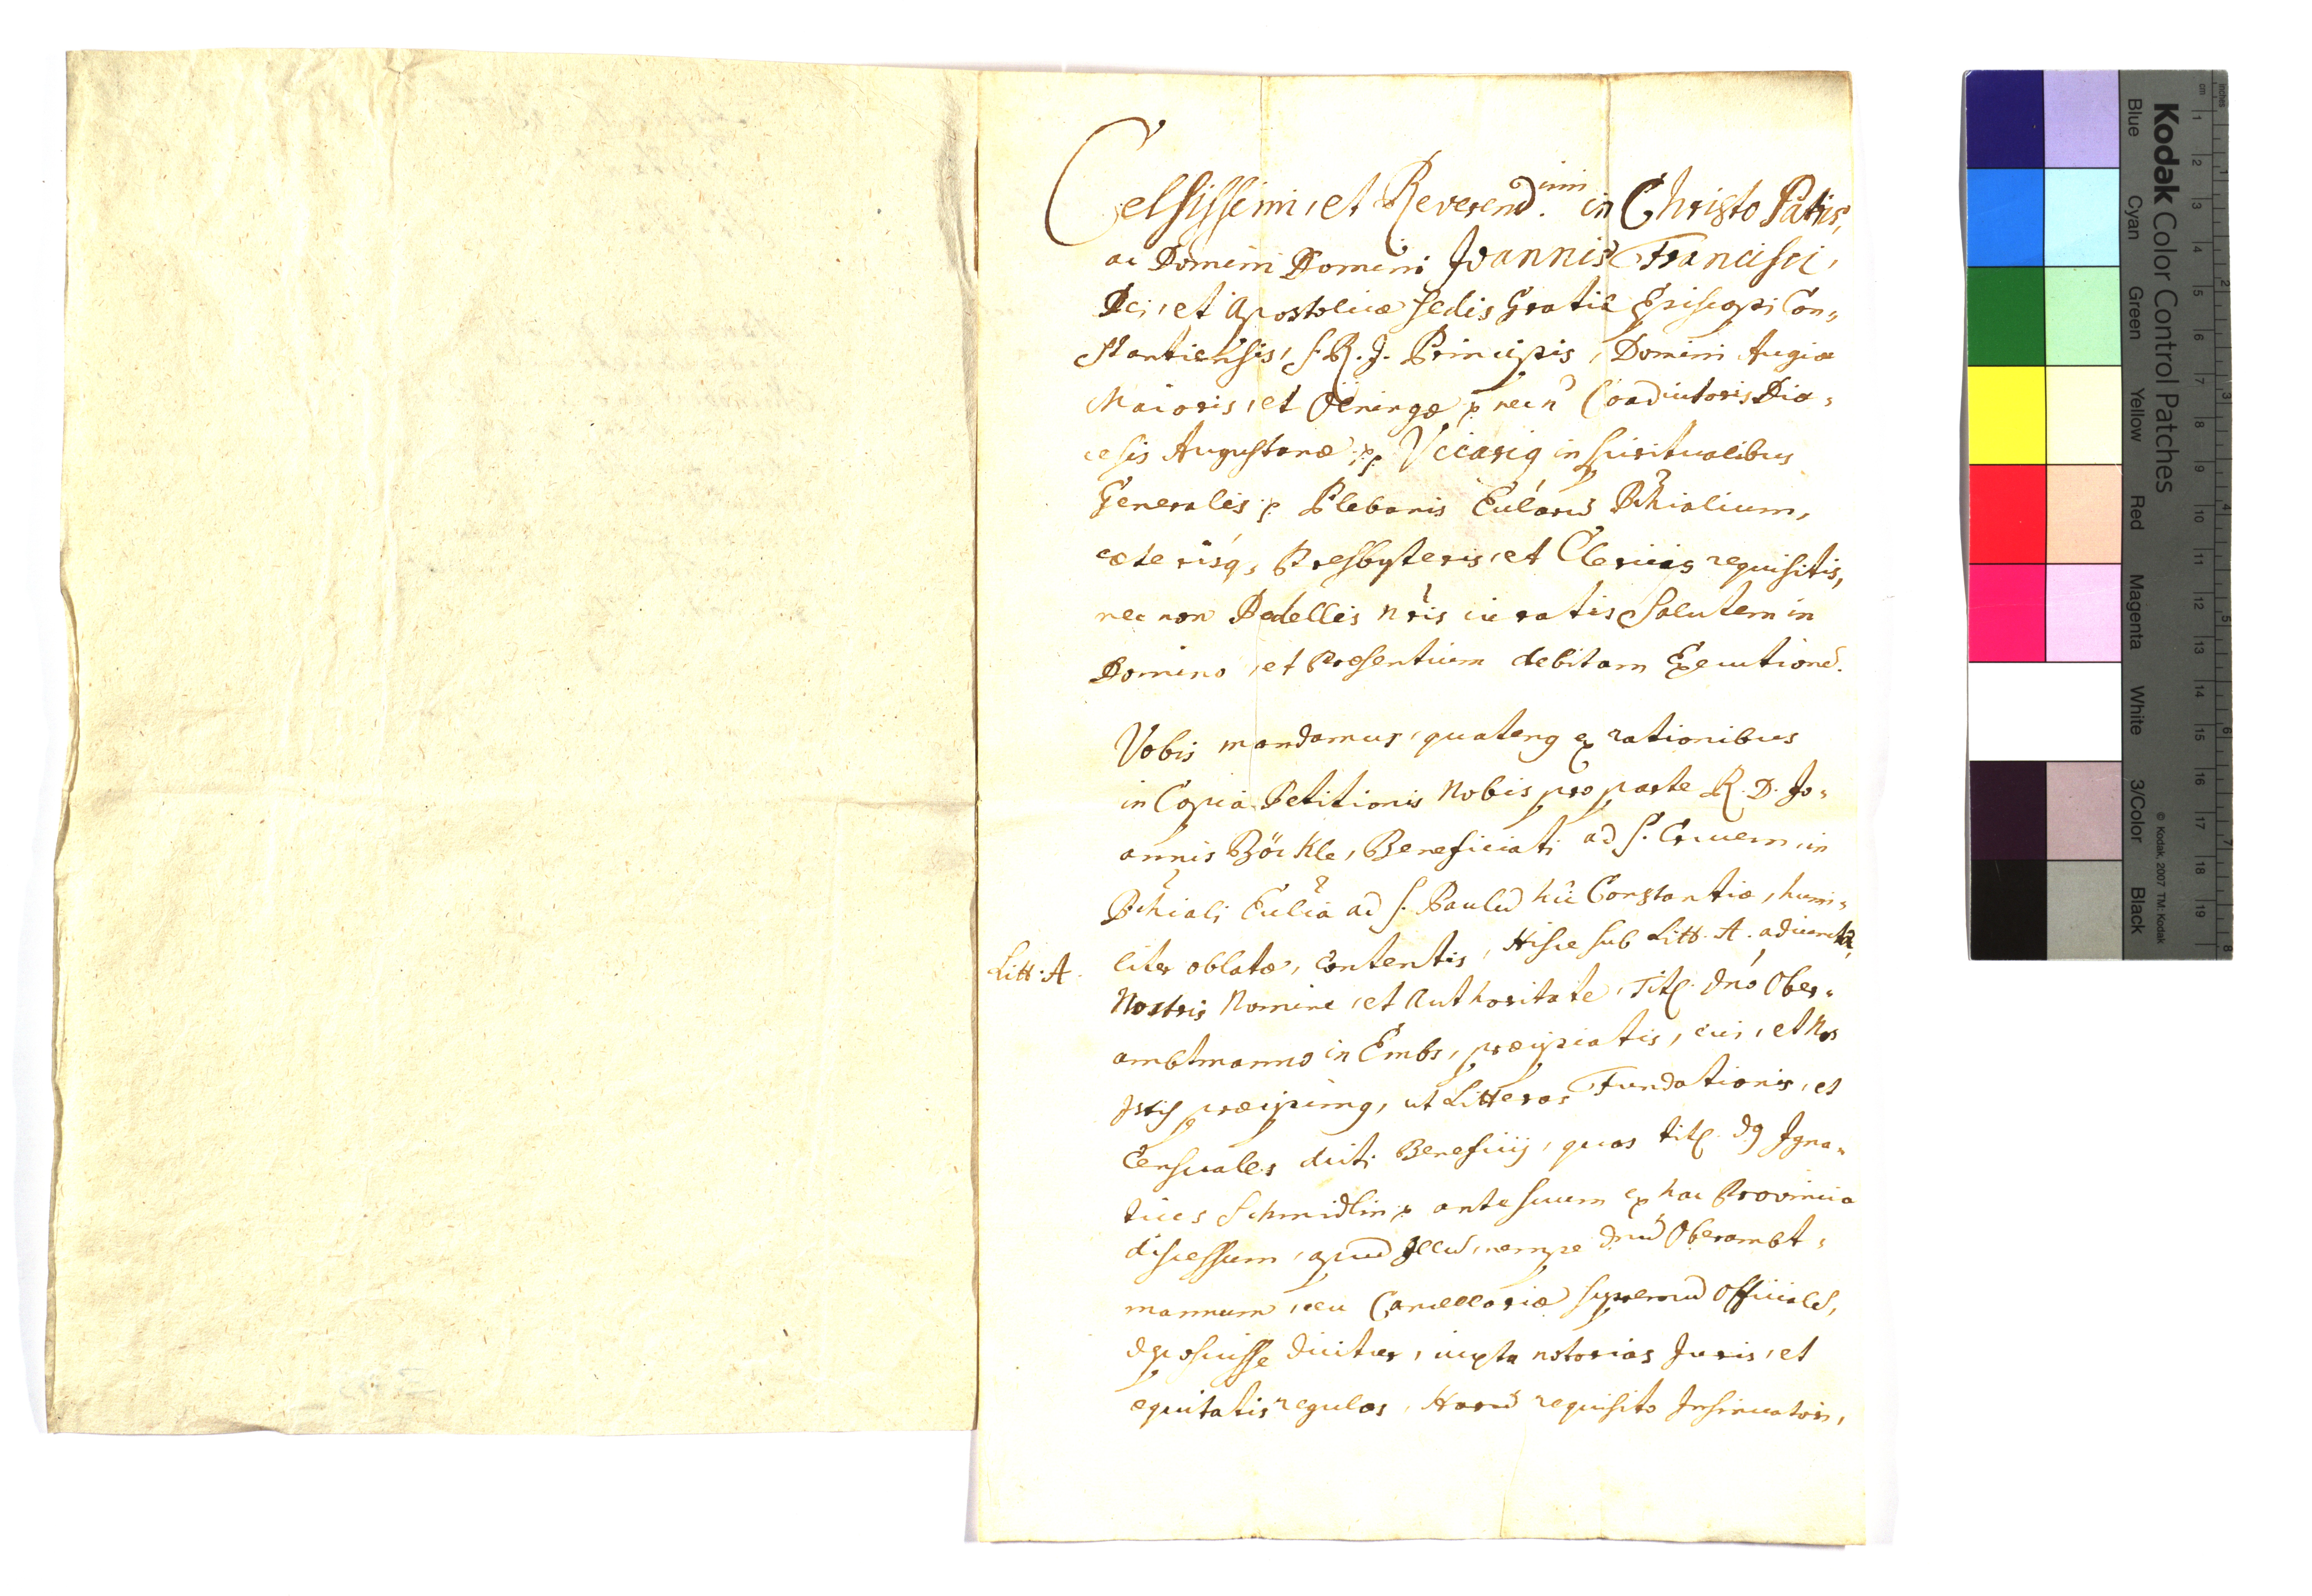 Celsissimi, et Reverend.imi in Christo Patris,
ac Domini Domini Joannis Francisci,
Dei, et Apostolicæ Sedis Gratiâ Episcopi Con„
stantiensis, S. R. J. Principis, Domini Augiæ
Maioris, et Öeningæ p necñ Coadiutoris Diæ„
cesis Augustanæ pp. Vicarig in spiritualibus
Generalis p Plebanis Ecclarũ Pchialium,
cæterisq, Presbyteris, et Clericis requisitis,
nec non Pedellis nris iuratis Salutem in
Domino, et Præsentium debitam Executionẽ.
Vobis mandamus, quateng ex rationibus
in Copia Petitionis Nobis pro parte R. D. Jo„
annis Böckle, Beneficiati ad S. Crucem, in
Pchiali Ecclia ad S. Paulũ hîc Constantiæ, humi„
Litt. A.
liter oblatæ, contentis, Hisce sub Litt. A. adiunctâ,
Nostris Nomine, et Authoritate, Titl. Dnõ Ober„
ambtmanno in Embs, præcipiatis, cui, et Nos
præcipimg, ut Litteras Fundationis, et
Censuales dicti Beneficij, quas titl. Dg Jgna„
tius Schmidlin p ante suum ex hac Provincia
discessum, apud Illũ, nempe Dnũ Oberambt„
mannum, ceu Cancellariæ supremũ Officialẽ,
deposuisse dicitur, iuxta notorias Juris, et
equitatis regulas, Harũ requisito Insinuatori,